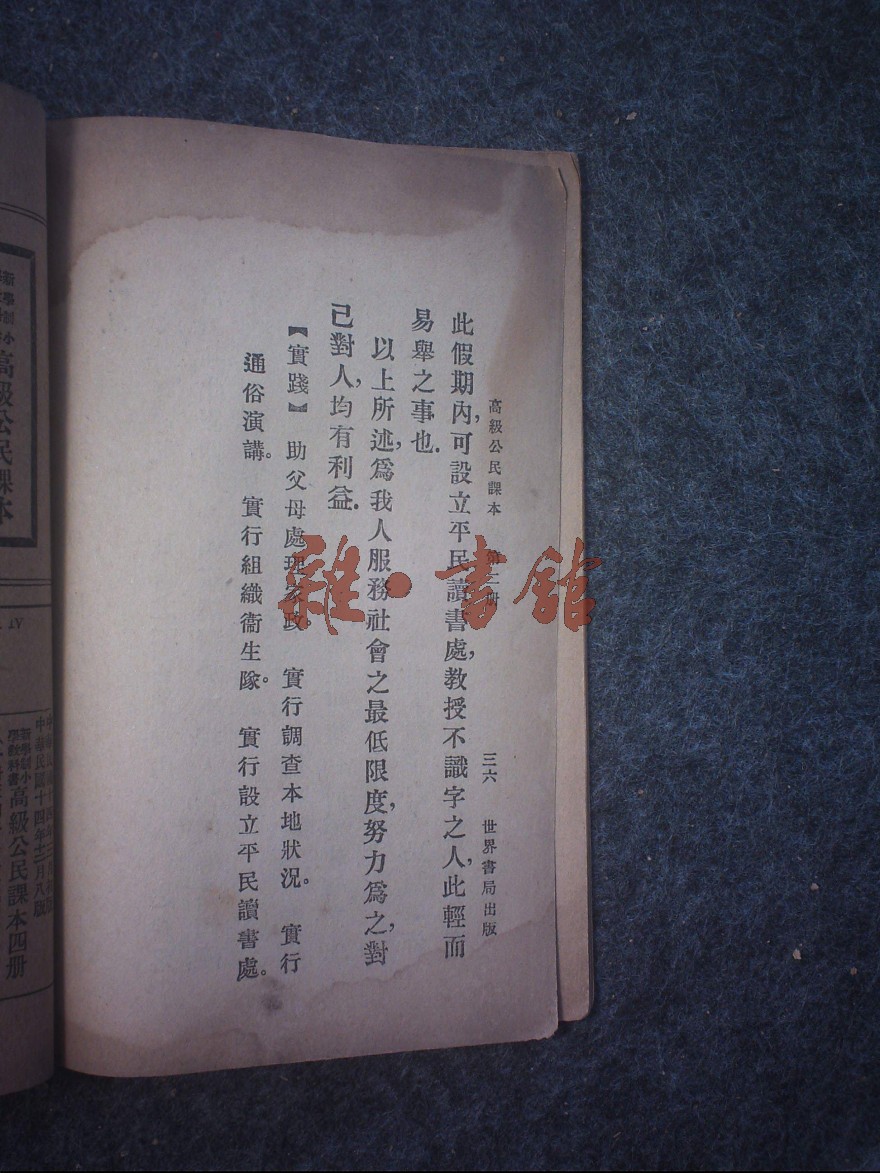 高級公民課本 第二册 三六 世界書局出版
此假期內,可設立平民讀書處,教授不識字之人,此輕而
易舉之事也.
以上所述,爲我人服務社會之最低限度,努力爲之,對
己對人,均有利益.
【實踐】助父母處理家政。實行調查本地狀况。實行
通俗演講。實行組織衞生隊。實行設立平民讀書處。
雜·書館
高級公民課本
中華民國十四年十二月八版
新學制小
學教科書
高級公民課本四册